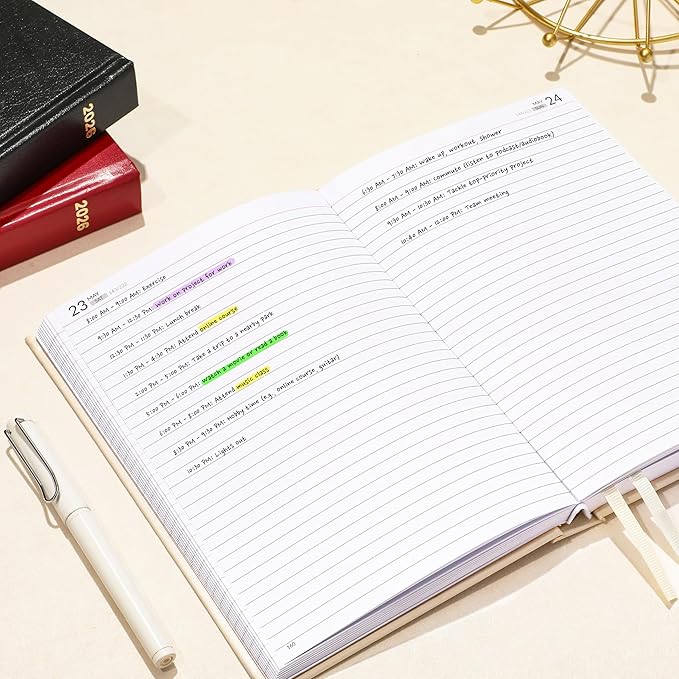 2026
2026
23 MAY
SAT
8:00 AM - 9:00 AM: Exercise
9:30 AM - 12:30 PM: Work on project for work
12:30 PM - 1:30 PM: Lunch break
1:30 PM - 4:30 PM: Attend online course
2:00 PM - 5:00 PM: Take a trip to a nearby park
5:00 PM - 6:00 PM: watch a movie or read a book
6:00 PM - 8:00 PM: Attend music class
8:30 PM - 9:30 PM: Hobby time (e.g., online course, guitar)
10:30 PM: Lights out
MAY 24
SUN
6:30 AM - 7:30 AM: wake up, workout, shower
8:00 AM - 9:00 AM: commute (listen to podcast/audiobook)
9:30 AM - 10:30 AM: Tackle top-priority project
10:40 AM - 12:00 PM: Team meeting